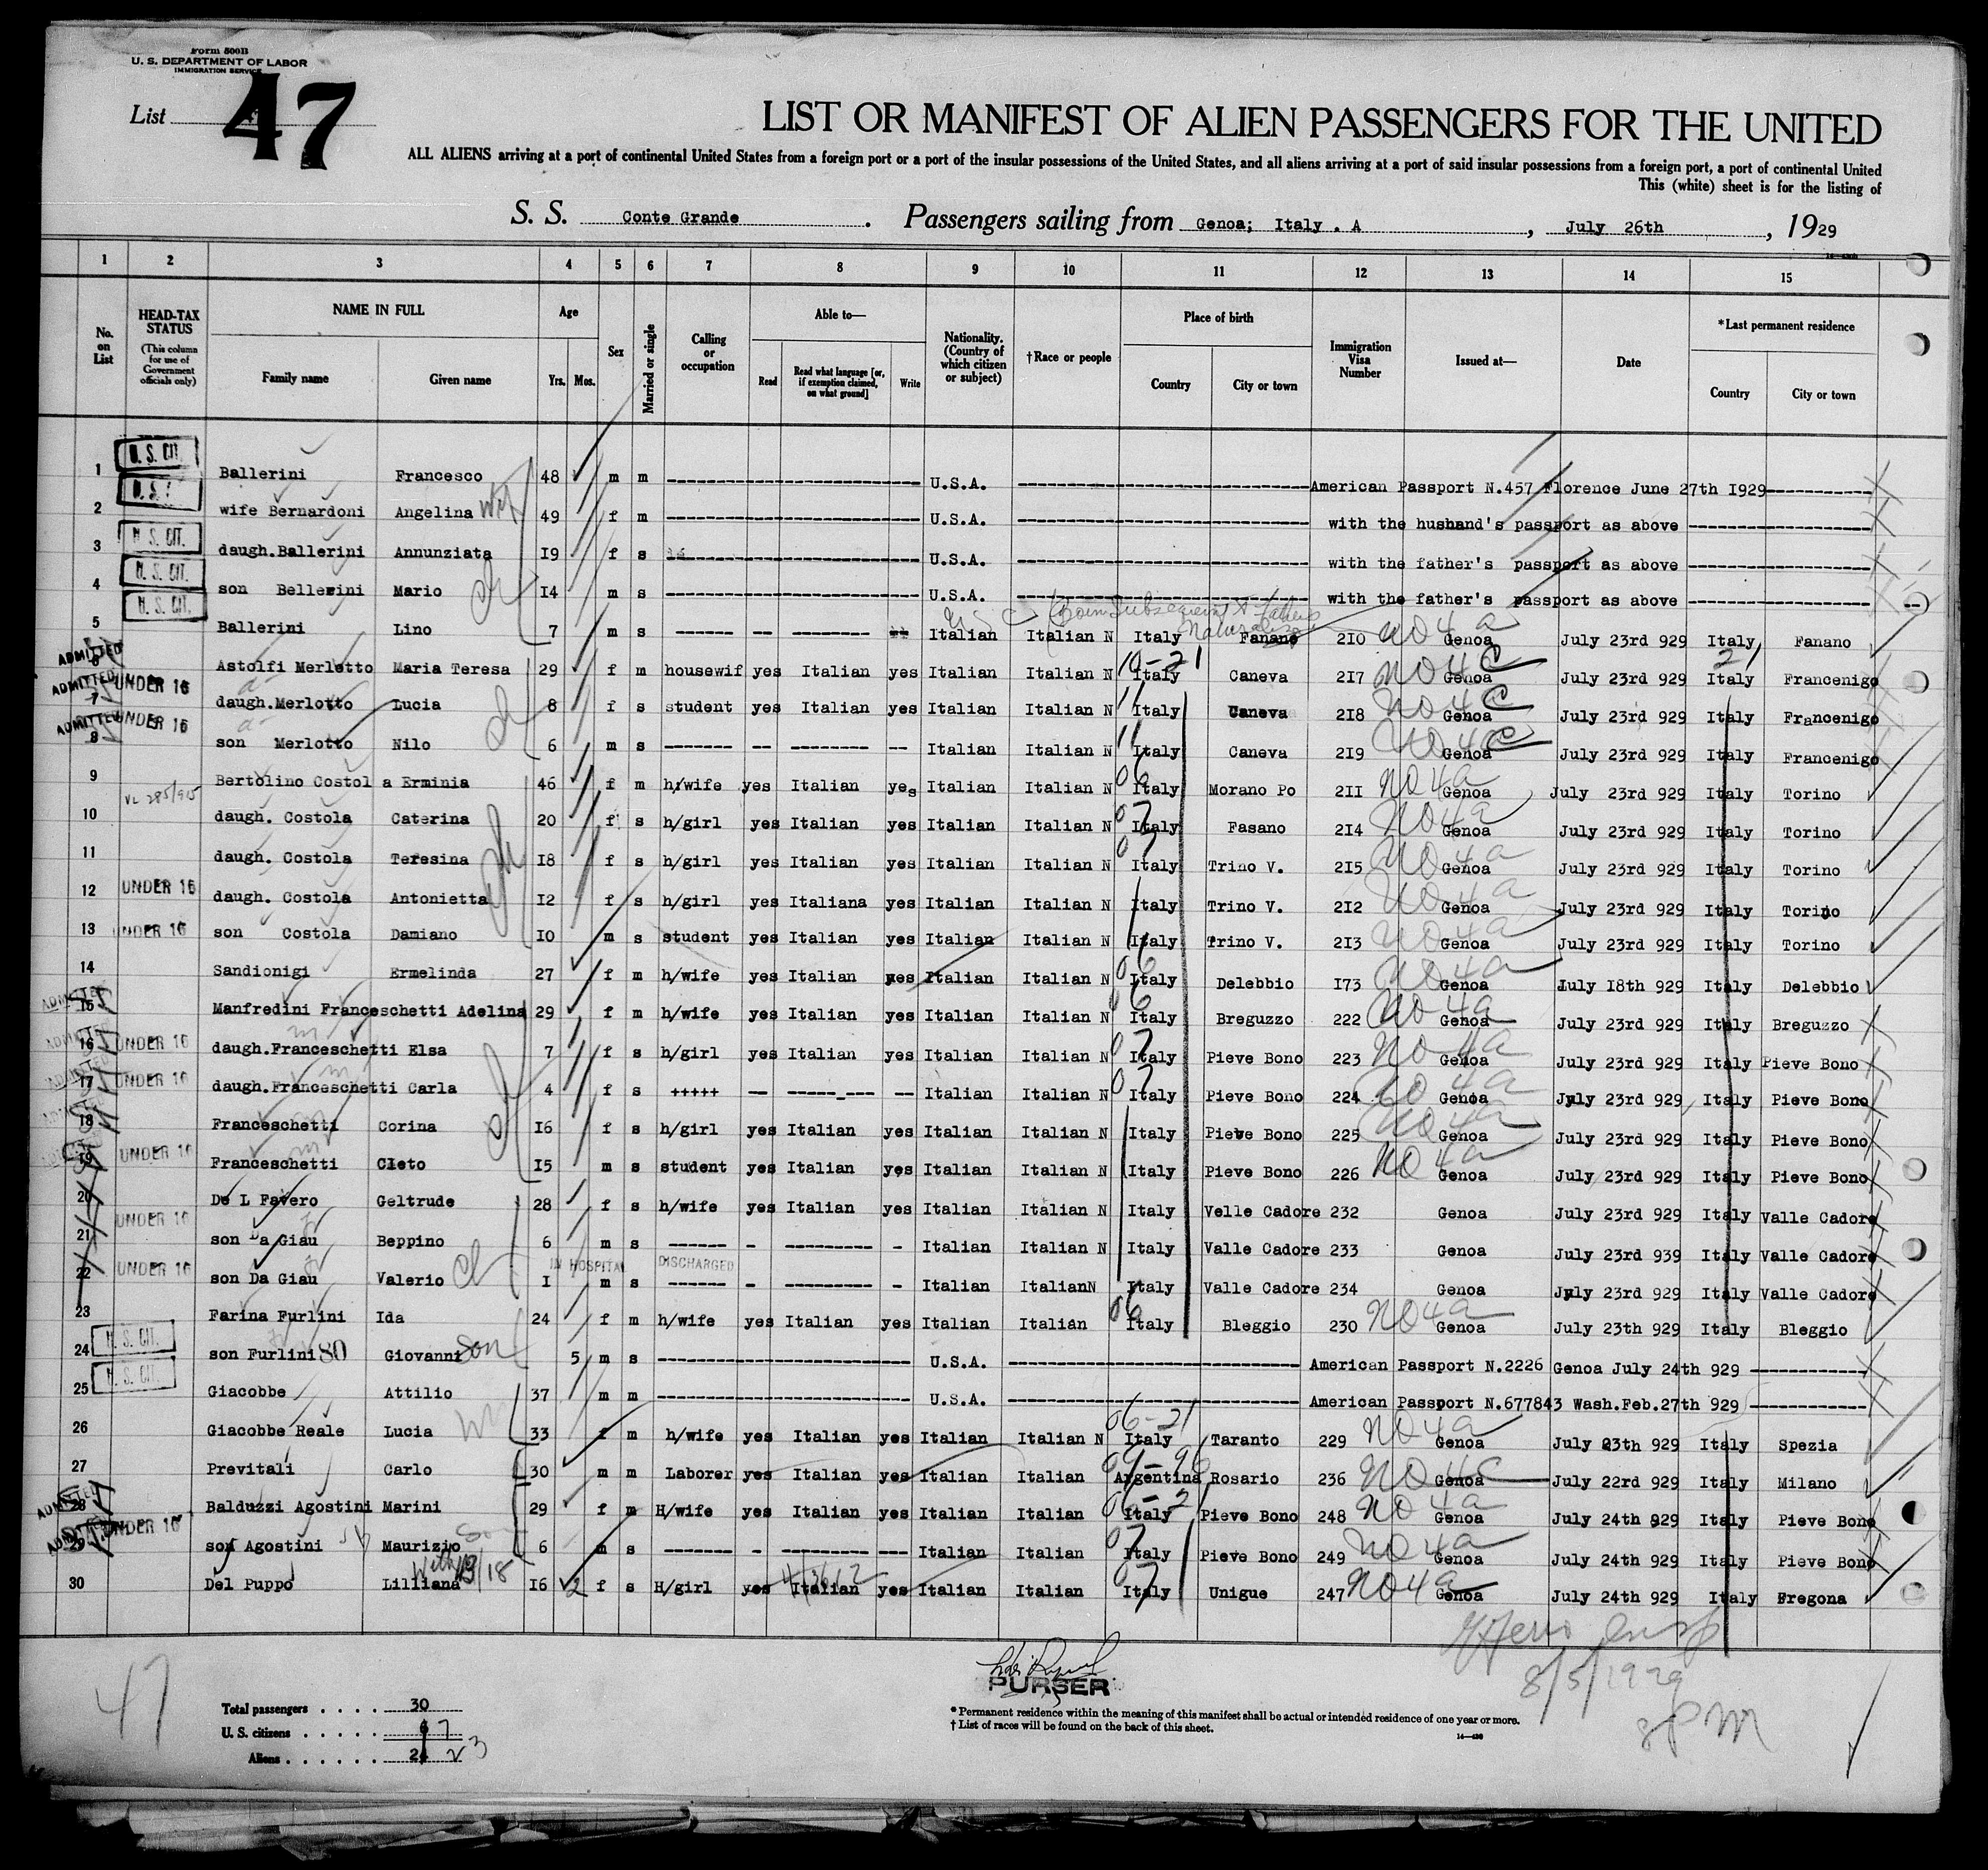 Form 500B
U. S. DEPARTMENT OF LABOR
IMMIGRATION SERVICE
List 47
LIST OR MANIFEST OF ALIEN PASSENGERS FOR THE UNITED
ALL ALIENS arriving at a port of continental United States from a foreign port or a port of the insular possessions of the United States, and all aliens arriving at a port of said insular possessions from a foreign port, a port of continental United
This (white) sheet is for the listing of
S. S. Conte Grande . Passengers sailing from Genoa; Italy . A , July 26th , 1929
1 2 3 4 5 6 7 8 9 10 11 12 13 14 15
No. on List
HEAD-TAX STATUS (This column for use of Government officials only)
NAME IN FULL Family name Given name
Age Yrs. Mos.
Sex
Married or single
Calling or occupation
Able to— Read Read what language [or, if exemption claimed, on what ground] Write
Nationality. (Country of which citizen or subject)
†Race or people
Place of birth Country City or town
Immigration Visa Number
Issued at—
Date
*Last permanent residence Country City or town
1 U. S. CIT. Ballerini Francesco 48 m m U.S.A. American Passport N.457 Florence June 27th I929
2 U. S. wife Bernardoni Angelina 49 f m U.S.A. with the husband's passport as above
3 U. S. CIT. daugh.Ballerini Annunziata I9 f s U.S.A. with the father's passport as above
4 U. S. CIT. son Bellerini Mario I4 m s U.S.A. with the father's passport as above
5 U. S. CIT. Ballerini Lino 7 m s Italian Italian N Italy Fanano 2I0 NO 4a Genoa July 23rd 929 Italy Fanano
ADMITTED 6 Astolfi Merlotto Maria Teresa 29 f m housewif yes Italian yes Italian Italian N Italy Caneva 2I7 NO 4C Genoa July 23rd 929 Italy Francenigo
ADMITTED 7 UNDER 16 daugh.Merlotto Lucia 8 f s student yes Italian yes Italian Italian N Italy Caneva 2I8 NO 4C Genoa July 23rd 929 Italy Francenigo
ADMITTED 8 UNDER 16 son Merlotto Nilo 6 m s Italian Italian N Italy Caneva 2I9 NO 4C Genoa July 23rd 929 Italy Francenigo
9 Bertolino Costol a Erminia 46 f m h/wife yes Italian yes Italian Italian N Italy Morano Po 2II NO 4a Genoa July 23rd 929 Italy Torino
10 daugh. Costola Caterina 20 f s h/girl yes Italian yes Italian Italian N Italy Fasano 2I4 NO 4a Genoa July 23rd 929 Italy Torino
11 daugh. Costola Teresina I8 f s h/girl yes Italian yes Italian Italian N Italy Trino V. 2I5 NO 4a Genoa July 23rd 929 Italy Torino
12 UNDER 16 daugh. Costola Antonietta I2 f s h/girl yes Italiana yes Italian Italian N Italy Trino V. 2I2 NO 4a Genoa July 23rd 929 Italy Torino
13 UNDER 16 son Costola Damiano I0 m s student yes Italian yes Italian Italian N Italy Trino V. 2I3 NO 4a Genoa July 23rd 929 Italy Torino
14 Sandionigi Ermelinda 27 f m h/wife yes Italian yes Italian Italian N Italy Delebbio I73 NO 4a Genoa July I8th 929 Italy Delebbio
ADMITTED 15 Manfredini Franceschetti Adelina 29 f m h/wife yes Italian yes Italian Italian N Italy Breguzzo 222 NO 4a Genoa July 23rd 929 Italy Breguzzo
ADMITTED 16 UNDER 16 daugh.Franceschetti Elsa 7 f s h/girl yes Italian yes Italian Italian N Italy Pieve Bono 223 NO 4a Genoa July 23rd 929 Italy Pieve Bono
17 UNDER 16 daugh.Franceschetti Carla 4 f s +++++ Italian Italian N Italy Pieve Bono 224 NO 4a Genoa July 23rd 929 Italy Pieve Bono
18 Franceschetti Corina I6 f s h/girl yes Italian yes Italian Italian N Italy Pieve Bono 225 NO 4a Genoa July 23rd 929 Italy Pieve Bono
19 UNDER 16 Franceschetti Cleto I5 m s student yes Italian yes Italian Italian N Italy Pieve Bono 226 NO 4a Genoa July 23rd 929 Italy Pieve Bono
20 De L Favero Geltrude 28 f s h/wife yes Italian yes Italian Italian N Italy Velle Cadore 232 Genoa July 23rd 929 Italy Valle Cadore
21 UNDER 16 son Da Giau Beppino 6 m s Italian Italian N Italy Valle Cadore 233 Genoa July 23rd 939 Italy Valle Cadore
IN HOSPITAL DISCHARGED
22 UNDER 16 son Da Giau Valerio I m s Italian ItalianN Italy Valle Cadore 234 Genoa July 23rd 929 Italy Valle Cadore
23 Farina Furlini Ida 24 f m h/wife yes Italian yes Italian Italian Italy Bleggio 230 NO 4a Genoa July 23th 929 Italy Bleggio
24 U. S. CIT. son Furlini Giovanni son 5 m s U.S.A. American Passport N.2226 Genoa July 24th 929
25 U. S. CIT. Giacobbe Attilio 37 m m U.S.A. American Passport N.677843 Wash.Feb.27th 929
26 Giacobbe Reale Lucia 33 f m h/wife yes Italian yes Italian Italian N Italy Taranto 229 NO 4a Genoa July 23th 929 Italy Spezia
27 Previtali Carlo 30 m m Laborer yes Italian yes Italian Italian Argentina Rosario 236 NO 4C Genoa July 22rd 929 Italy Milano
ADMITTED 28 Balduzzi Agostini Marini 29 f m H/wife yes Italian yes Italian Italian Italy Pieve Bono 248 NO 4a Genoa July 24th 929 Italy Pieve Bono
ADMITTED 29 UNDER 16 son Agostini Maurizio 6 m s Italian Italian Italy Pieve Bono 249 NO 4a Genoa July 24th 929 Italy Pieve Bono
30 Del Puppo Lilliana I6 2 f s H/girl yes Italian yes Italian Italian Italy Unigue 247 NO 4a Genoa July 24th 929 Italy Fregona
8/5/1929
8 PM
47
PURSER
Total passengers . . . . . 30
U. S. citizens . . . . . 7
Aliens . . . . . . 23
* Permanent residence within the meaning of this manifest shall be actual or intended residence of one year or more.
† List of races will be found on the back of this sheet.